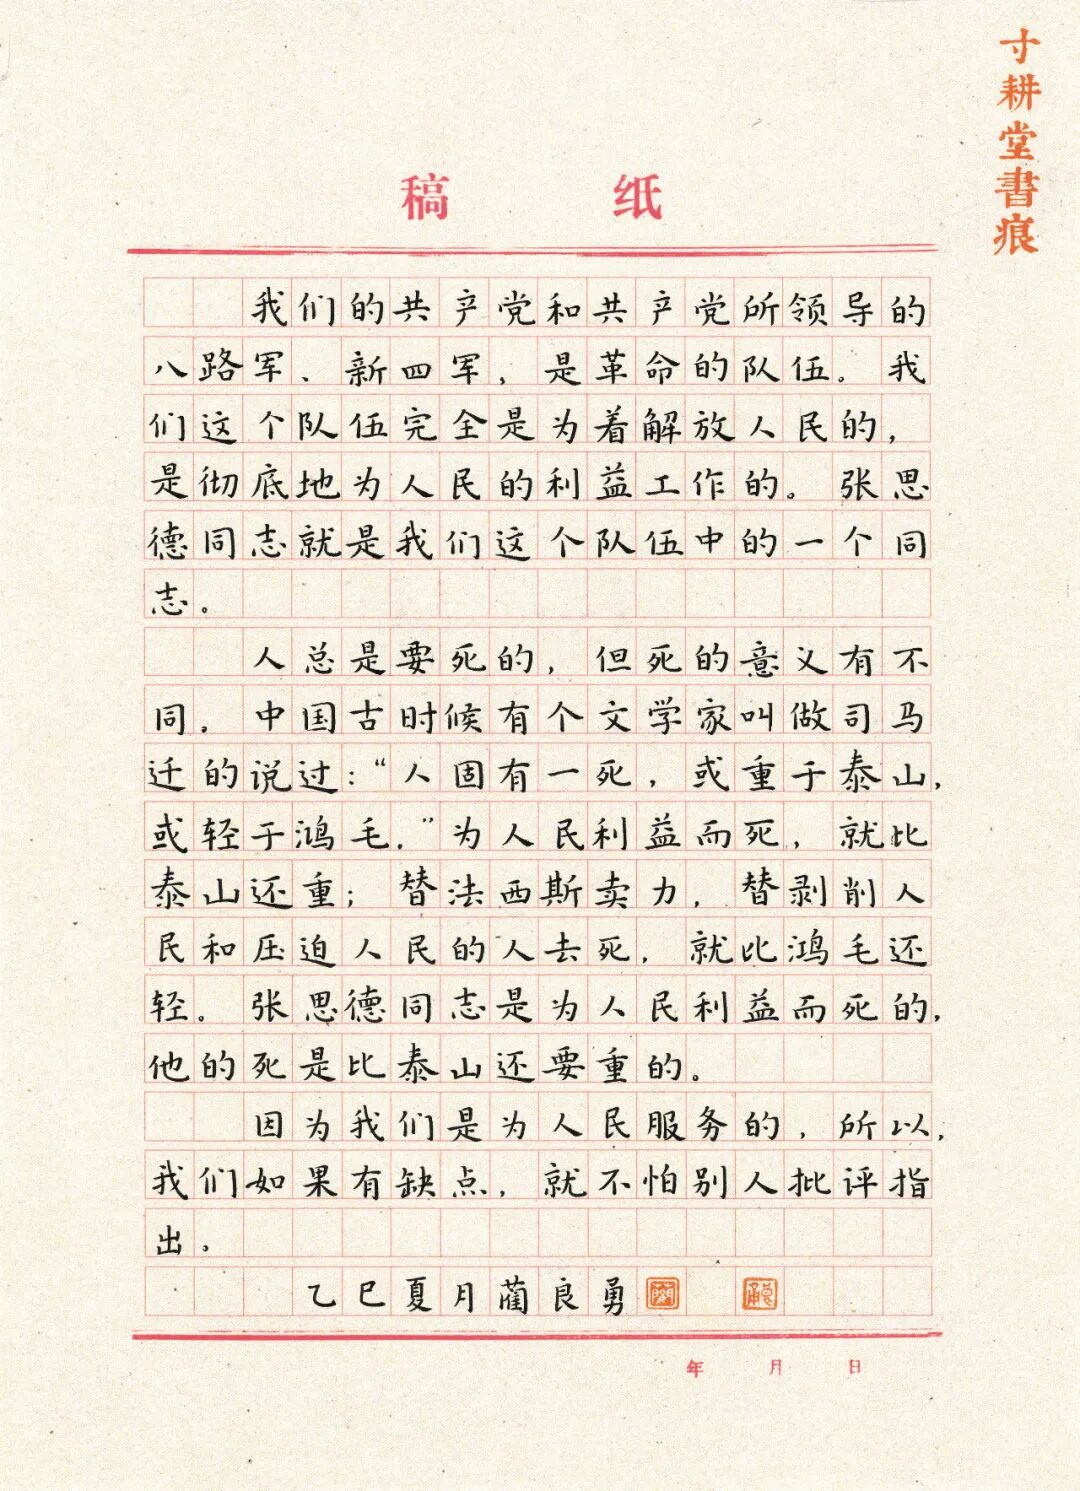 寸耕堂書痕
稿纸
我们的共产党和共产党所领导的
八路军、新四军，是革命的队伍。我
们这个队伍完全是为着解放人民的，
是彻底地为人民的利益工作的。张思
德同志就是我们这个队伍中的一个同
志。
人总是要死的，但死的意义有不
同。中国古时候有个文学家叫做司马
迁的说过：“人固有一死，或重于泰山，
或轻于鸿毛。”为人民利益而死，就比
泰山还重；替法西斯卖力，替剥削人
民和压迫人民的人去死，就比鸿毛还
轻。张思德同志是为人民利益而死的，
他的死是比泰山还要重的。
因为我们是为人民服务的，所以，
我们如果有缺点，就不怕别人批评指
出。
乙巳夏月蔺良勇
年 月 日